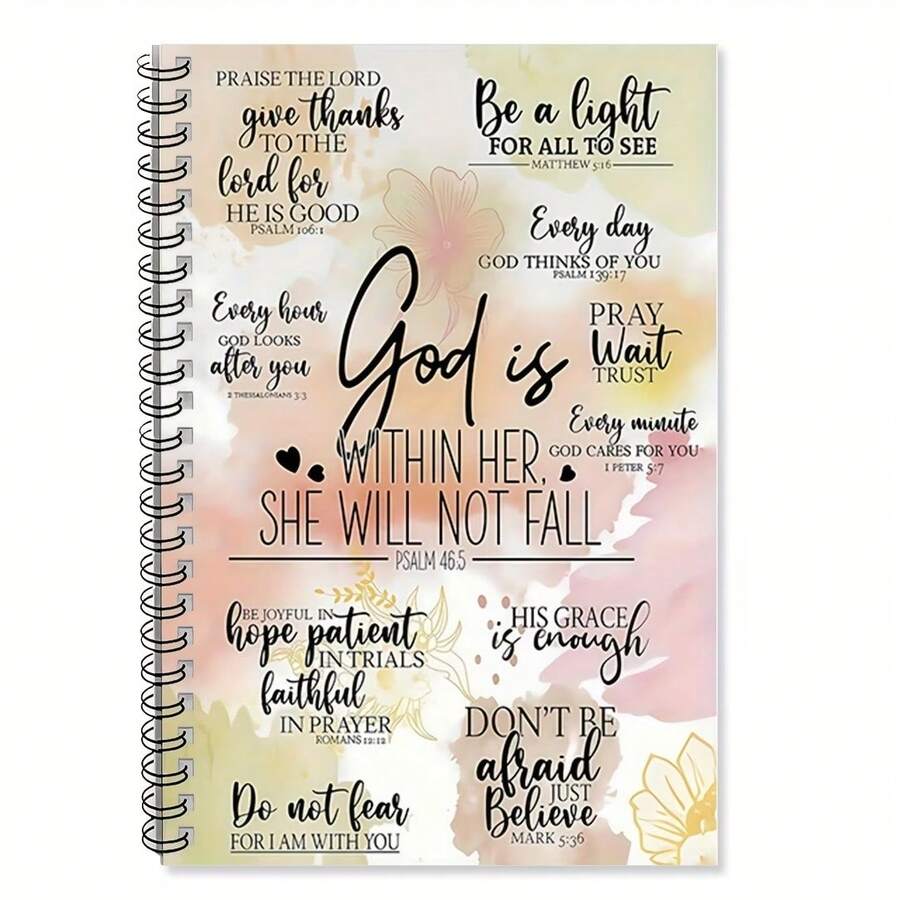 PRAISE THE LORD
give thanks
TO THE
lord for
HE IS GOOD
PSALM 106:1
Be a light
FOR ALL TO SEE
MATTHEW 5:16
Every day
GOD THINKS OF YOU
PSALM 139:17
Every hour
GOD LOOKS
after you
2 THESSALONIANS 3:3
PRAY
Wait
TRUST
Every minute
GOD CARES FOR YOU
1 PETER 5:7
God is
WITHIN HER,
SHE WILL NOT FALL
PSALM 46:5
BE JOYFUL IN
hope patient
IN TRIALS
faithful
IN PRAYER
ROMANS 12:12
HIS GRACE
is enough
DON'T BE
afraid
JUST
Believe
MARK 5:36
Do not fear
FOR I AM WITH YOU